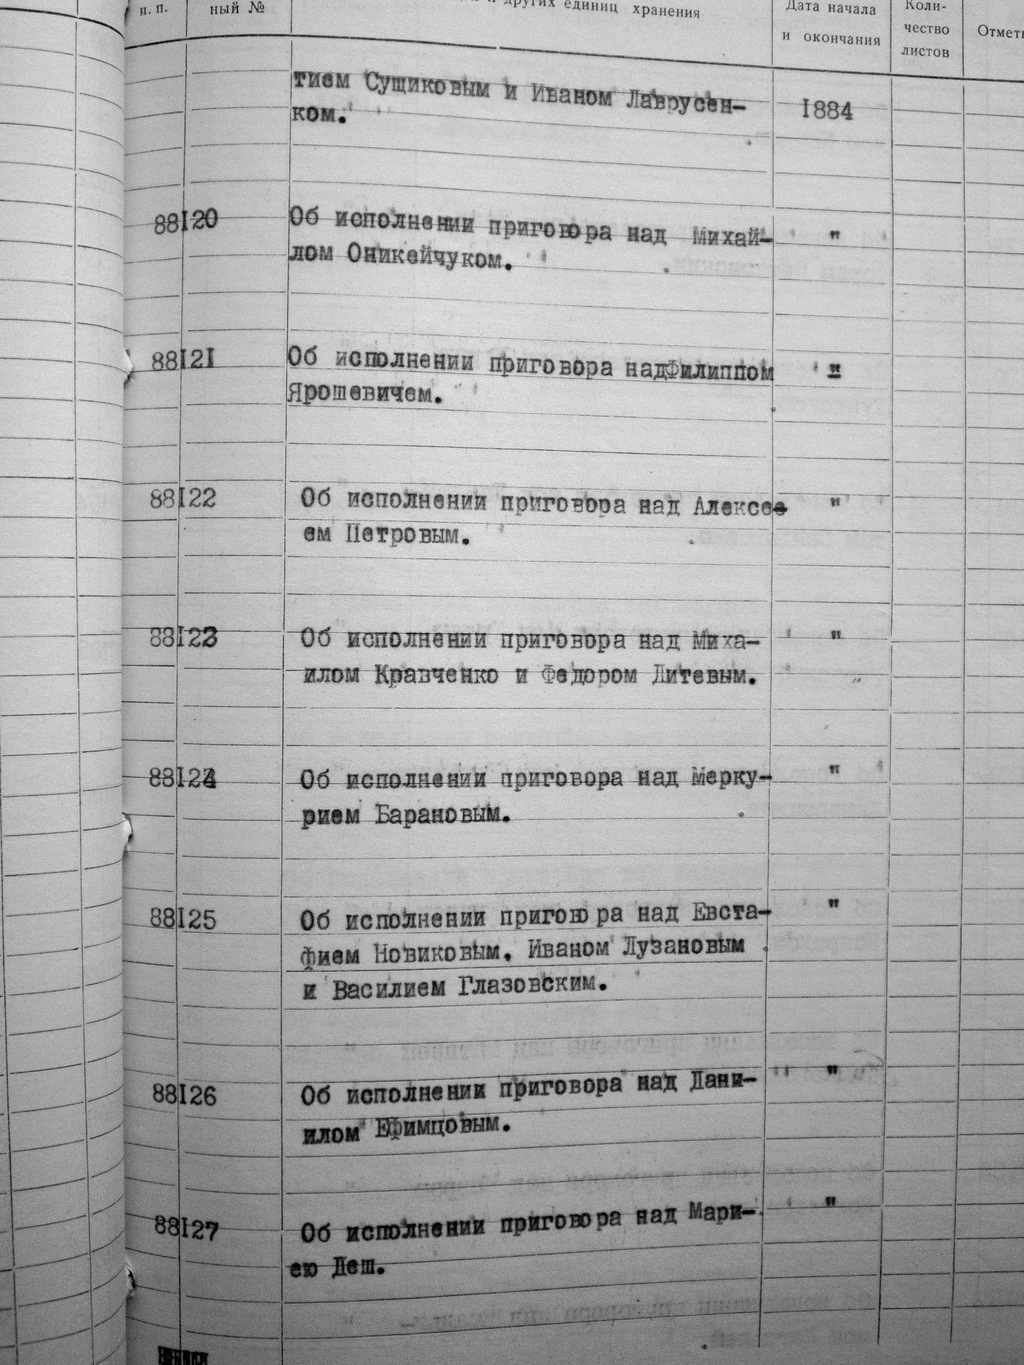 п. п.
ный №
и других единиц хранения
Дата начала
и окончания
Коли-
чество
листов
Отмет
тием Сущиковым и Иваном Лаврусен-
ком.
1884
88120 Об исполнении приговора над Михай- "
лом Оникейчуком.
88121 Об исполнении приговора надФилиппом "
Ярошевичем.
88122 Об исполнении приговора над Алексее "
ем Петровым.
88123 Об исполнении приговора над Миха- "
илом Кравченко и Федором Литевым.
88124 Об исполнении приговора над Мерку- "
рием Барановым.
88125 Об исполнении приговора над Евста- "
фием Новиковым. Иваном Лузановым
и Василием Глазовским.
88126 Об исполнении приговора над Дани- "
илом Ефимцовым.
88127 Об исполнении приговора над Мари- "
ею Деш.